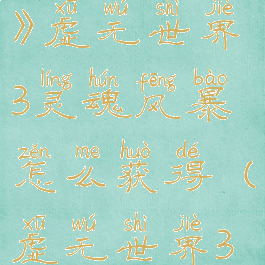 xū wú shì jiè
》虚无世界
líng hún fēng bào
3灵魂风暴
zěn me huò dé
怎么获得（
xū wú shì jiè
虚无世界3